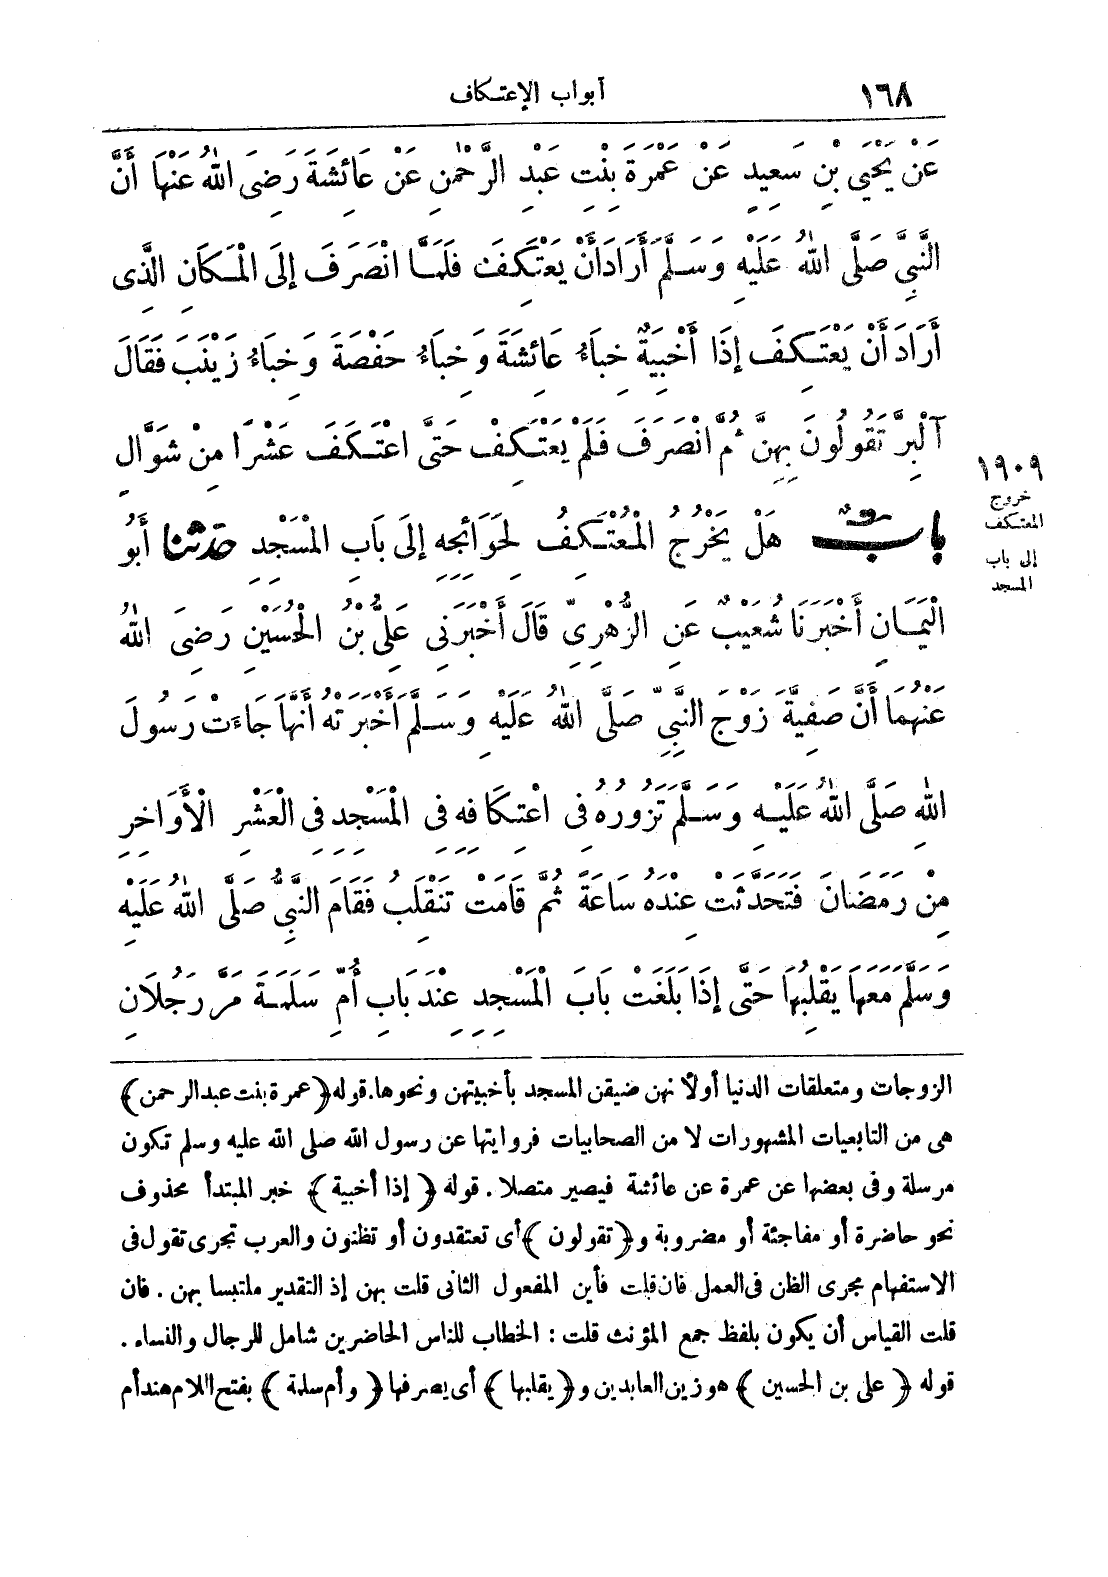 ١٦٨
أبواب الإعتكاف
عَنْ يَحْيَى بْنِ سَعِيدٍ عَنْ عَمْرَةَ بِنْتِ عَبْدِ الرَّحْمٰنِ عَنْ عَائِشَةَ رَضِىَ اللهُ عَنْهَا أَنَّ
النَّبِىَّ صَلَّى اللهُ عَلَيْهِ وَسَلَّمَ أَرَادَ أَنْ يَعْتَكِفَ فَلَمَّا انْصَرَفَ إِلَى الْمَكَانِ الَّذِى
أَرَادَ أَنْ يَعْتَكِفَ إِذَا أَخْبِيَةٌ خِبَاءُ عَائِشَةَ وَخِبَاءُ حَفْصَةَ وَخِبَاءُ زَيْنَبَ فَقَالَ
آلْبِرَّ تَقُولُونَ بِهِنَّ ثُمَّ انْصَرَفَ فَلَمْ يَعْتَكِفْ حَتَّى اعْتَكَفَ عَشْرًا مِنْ شَوَّالٍ
١٩٠٩
خروج
المعتكف
إلى باب
المسجد
بَابٌ هَلْ يَخْرُجُ الْمُعْتَكِفُ لِحَوَائِجِهِ إِلَى بَابِ الْمَسْجِدِ حَدَّثَنَا أَبُو
الْيَمَانِ أَخْبَرَنَا شُعَيْبٌ عَنِ الزُّهْرِىِّ قَالَ أَخْبَرَنِى عَلِىُّ بْنُ الْحُسَيْنِ رَضِىَ اللهُ
عَنْهُمَا أَنَّ صَفِيَّةَ زَوْجَ النَّبِىِّ صَلَّى اللهُ عَلَيْهِ وَسَلَّمَ أَخْبَرَتْهُ أَنَّهَا جَاءَتْ رَسُولَ
اللهِ صَلَّى اللهُ عَلَيْهِ وَسَلَّمَ تَزُورُهُ فِى اعْتِكَافِهِ فِى الْمَسْجِدِ فِى الْعَشْرِ الْأَوَاخِرِ
مِنْ رَمَضَانَ فَتَحَدَّثَتْ عِنْدَهُ سَاعَةً ثُمَّ قَامَتْ تَنْقَلِبُ فَقَامَ النَّبِىُّ صَلَّى اللهُ عَلَيْهِ
وَسَلَّمَ مَعَهَا يَقْلِبُهَا حَتَّى إِذَا بَلَغَتْ بَابَ الْمَسْجِدِ عِنْدَ بَابِ أُمِّ سَلَمَةَ مَرَّ رَجُلَانِ
الزوجات ومتعلقات الدنيا أولأ نهن ضيقن المسجد بأخبيتهن ونحوها. قوله ﴿عمرة بنت عبدالرحمن﴾
هى من التابعيات المشهورات لا من الصحابيات فروايتها عن رسول الله صلى الله عليه وسلم تكون
مرسلة وفى بعضها عن عمرة عن عائشة فيصير متصلا. قوله ﴿إذا أخبية﴾ خبر المبتدأ محذوف
نحو حاضرة أو مفاجئة أو مضروبة و﴿تقولون﴾ أى تعتقدون أو تظنون والعرب تجرى تقول فى
الاستفهام مجرى الظن فى العمل فان قلت فأين المفعول الثانى قلت بهن إذ التقدير ملتبسا بهن. فان
قلت القياس أن يكون بلفظ جمع المؤنث قلت: الخطاب للناس الحاضرين شامل للرجال والنساء.
قوله ﴿على بن الحسين﴾ هو زين العابدين و﴿يقلبها﴾ أى يصرفها ﴿وأم سلمة﴾ بفتح اللام هند أم